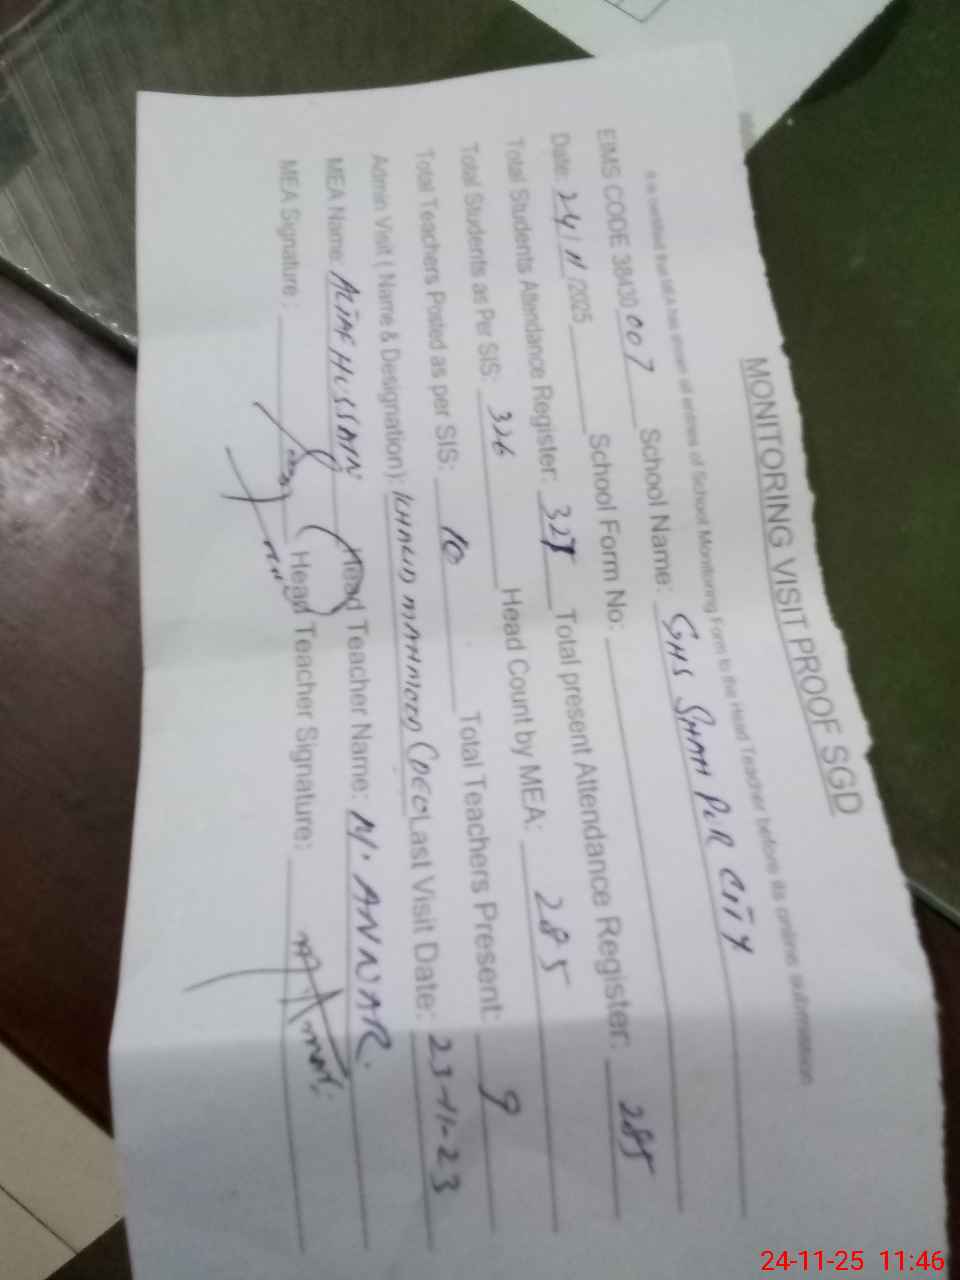 MONITORING VISIT PROOF SGD
It is certified that MEA has shown all entries of School Monitoring Form to the Head Teacher before its online submission
EMIS CODE 38430007 School Name: GHS SHAH PUR CITY
Date: 24/11/2025 School Form No:
Total Students Attendance Register: 327 Total present Attendance Register: 285
Total Students as Per SIS: 326 Head Count by MEA: 285
Total Teachers Posted as per SIS: 10 Total Teachers Present: 9
Admin Visit ( Name & Designation): KHALID MAHMOOD (DEO Last Visit Date: 23-11-23
MEA Name: ALTAF HUSSAIN Head Teacher Name: M. ANWAR.
MEA Signature: Head Teacher Signature:
24-11-25 11:46